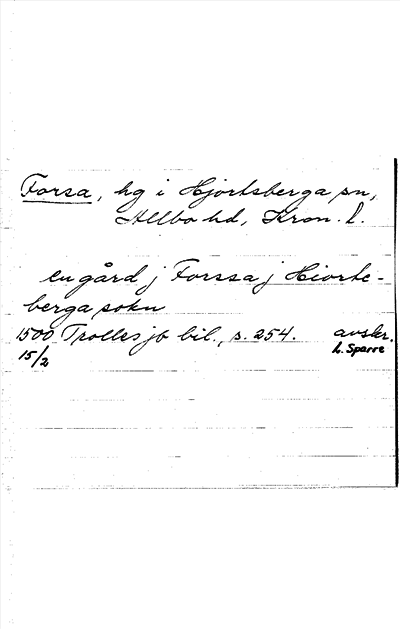 Forsa, hg i Hjortsberga sn,
Allbo hd, Kron. l.
en gård j Forssa j Hiorte-
berga sokn
1500 Trolles jb bil., s. 254. avskr.
15/2 L. Sparre